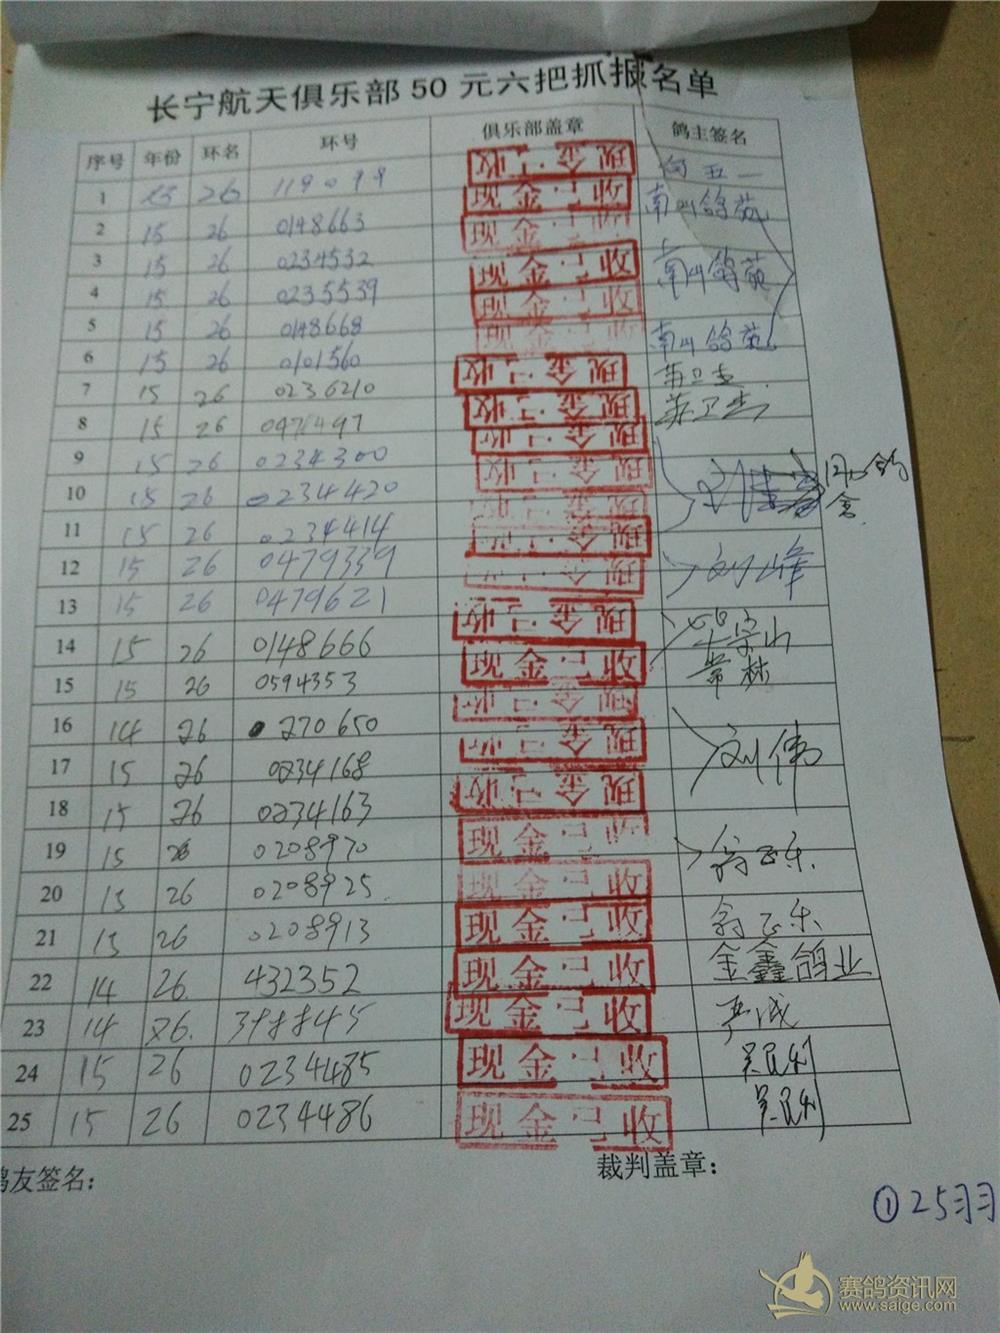 长宁航天俱乐部50元六把抓报名单
序号 年份 环名 环号 俱乐部盖章 鸽主签名
1 26 现金已收
2 15 26 0148663 现金已收 南山鸽苑
3 15 26 0234532 现金已收
4 15 26 0235539 现金已收 南山鸽苑
5 15 26 0148668 现金已收
6 15 26 0101560 现金已收 南山鸽苑
7 15 26 0236210 现金已收
8 15 26 现金已收
9 15 26 0234300 现金已收
10 15 26 0234420 现金已收
11 15 26 0234414 现金已收
12 15 26 0479339 现金已收 刘峰
13 15 26 0479621 现金已收
14 15 26 0148666 现金已收
15 15 26 0594353 现金已收
16 14 26 270650 现金已收 刘伟
17 15 26 0234168 现金已收
18 15 26 0234163 现金已收
19 15 26 0208970 现金已收 翁正乐
20 15 26 0208925 现金已收
21 15 26 0208913 现金已收 翁正乐
22 14 26 432352 现金已收 金鑫鸽业
23 14 26 398845 现金已收
24 15 26 0234485 现金已收
25 15 26 0234486 现金已收
鸽友签名：
裁判盖章：
①25羽
赛鸽资讯网
www.saige.com